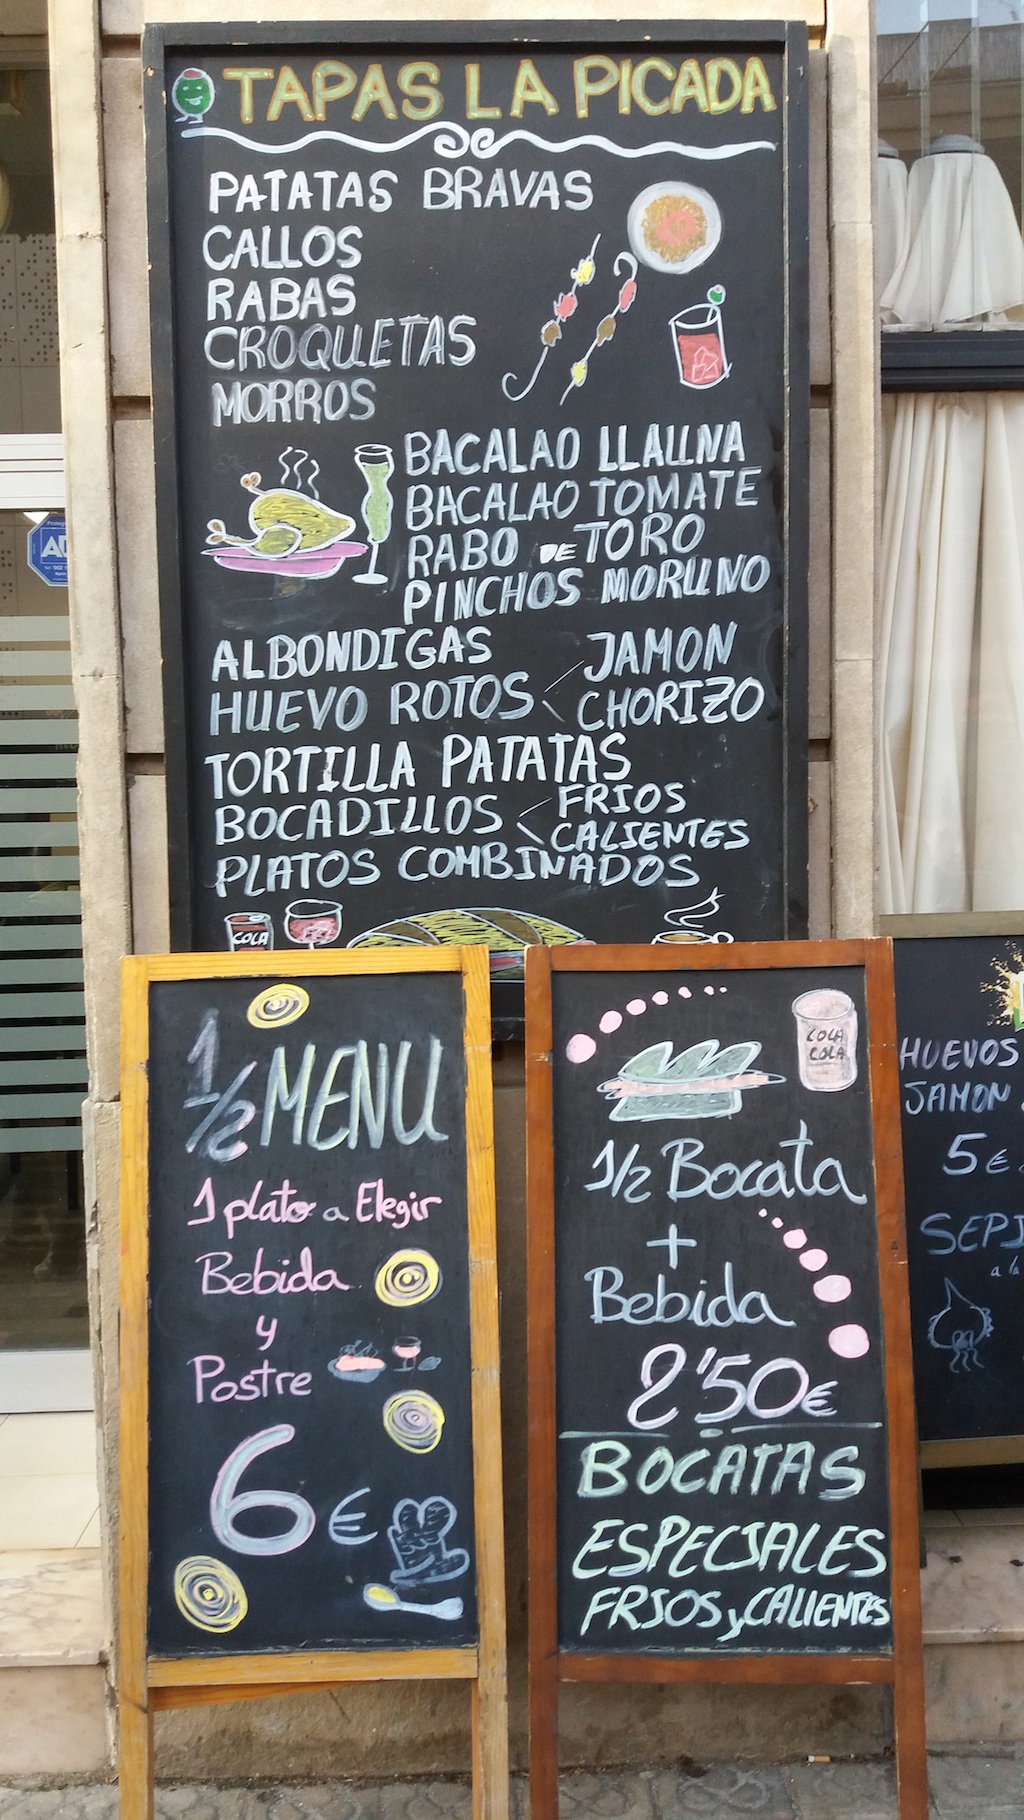 TAPAS LA PICADA
PATATAS BRAVAS
CALLOS
RABAS
CROQUETAS
MORROS
BACALAO LLAUNA
BACALAO TOMATE
RABO DE TORO
PINCHOS MORUNO
ALBONDIGAS
HUEVO ROTOS JAMON
CHORIZO
TORTILLA PATATAS
BOCADILLOS FRIOS
CALIENTES
PLATOS COMBINADOS
COLA
1/2 MENU
1 plato a Elegir
Bebida
y
Postre
6€
COCA
COLA
1/2 Bocata
+
Bebida
2'50€
BOCATAS
ESPECIALES
FRIOS y CALIENTES
HUEVOS
JAMON
5€
a la